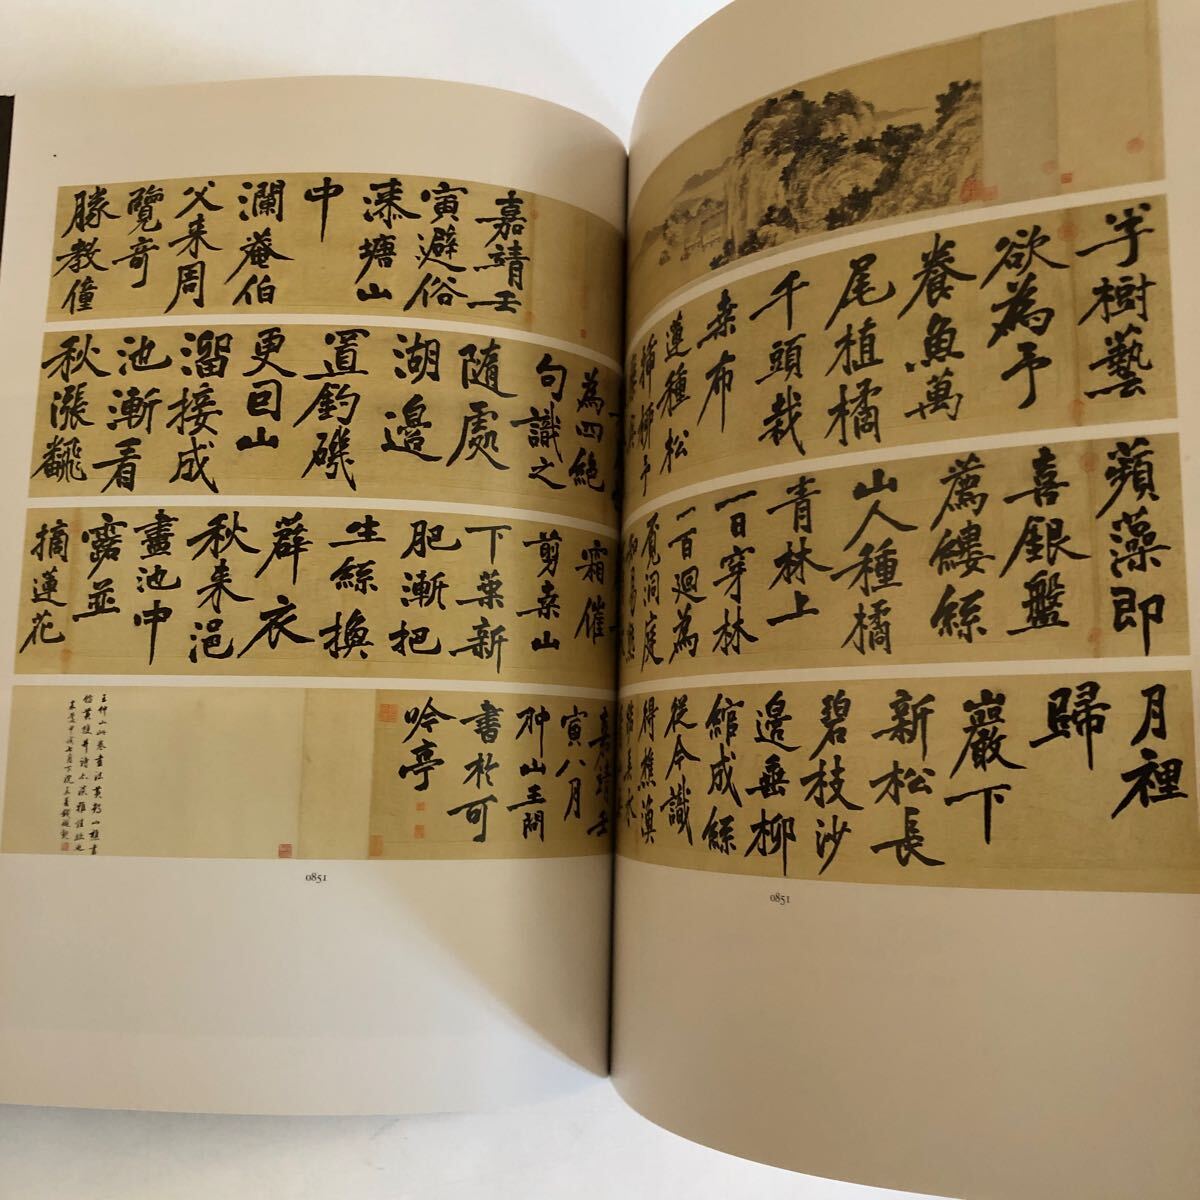 嘉靖壬
寅避俗
漆塘山
中
瀾菴伯
父来周
覽奇
勝教僮
芋樹藝
欲為予
養魚萬
尾植橘
千頭栽
桑布
蓮種松
插柳予
為四絶
句識之
隨處
湖邊
置釣磯
更回山
溜接成
池漸看
秋漲飜
蘋藻即
喜銀盤
薦縷絲
山人種橘
青林上
一日穿林
一百迴為
覓洞庭
霜催
剪桑山
下葉新
肥漸把
生絲換
薜衣
秋来浥
盡池中
露並
摘蓮花
月裡
歸
巖下
新松長
碧枝沙
邊垂柳
綰成絲
從今識
得樵漁
嘉靖壬
寅八月
仲山王問
書於可
吟亭
王仲山此卷畫法黃鶴山樵書
0851
0851